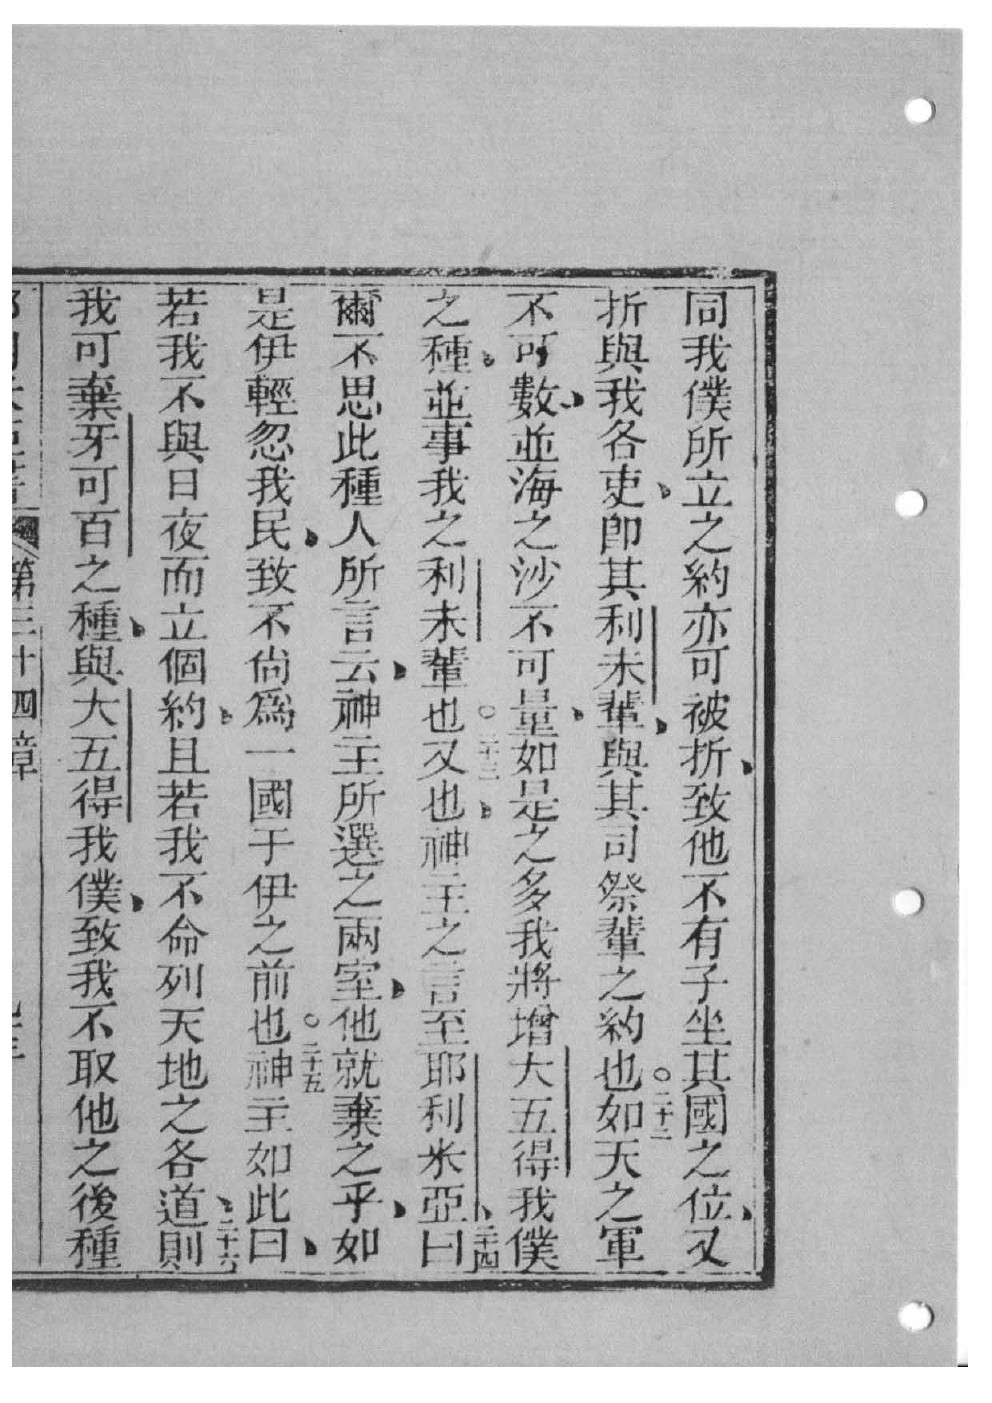 同我僕所立之約亦可被折、致他不有子坐其國之位、又
折與我各吏、卽其利未輩、與其司祭輩之約也○二十二如天之軍
不可數、並海之沙不可量、如是之多我將增大五得我僕
之種、並事我之利未輩也○二十三又也、神主之言至耶利米亞曰、二十四
爾不思此種人所言云、神主所選之兩室、他就棄之乎、如
是伊輕忽我民、致不尙爲一國于伊之前也○二十五神主如此曰、
若我不與日夜而立個約、且若我不命列天地之各道、二十六則
我可棄牙可百之種、與大五得我僕、致我不取他之後種
第三十四章